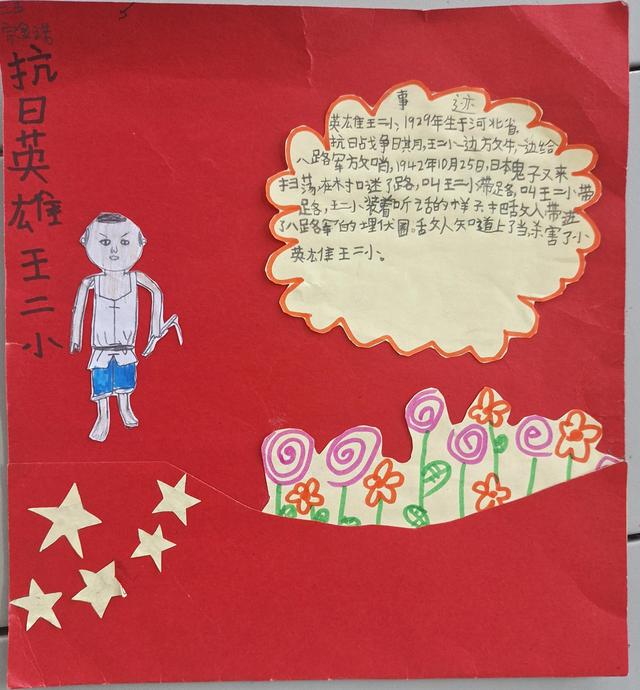 抗日英雄王二小
事 迹
英雄王二小,1929年生于河北省。
抗日战争日期,王二小一边放牛,一边给
八路军放哨,1942年10月25日,日本鬼子又来
扫荡在村口迷了路,叫王二小带路,叫王二小带
路,王二小装着听话的样子把敌人带进
了八路军的埋伏圈。敌人知道上了当,杀害了小
英雄王二小。